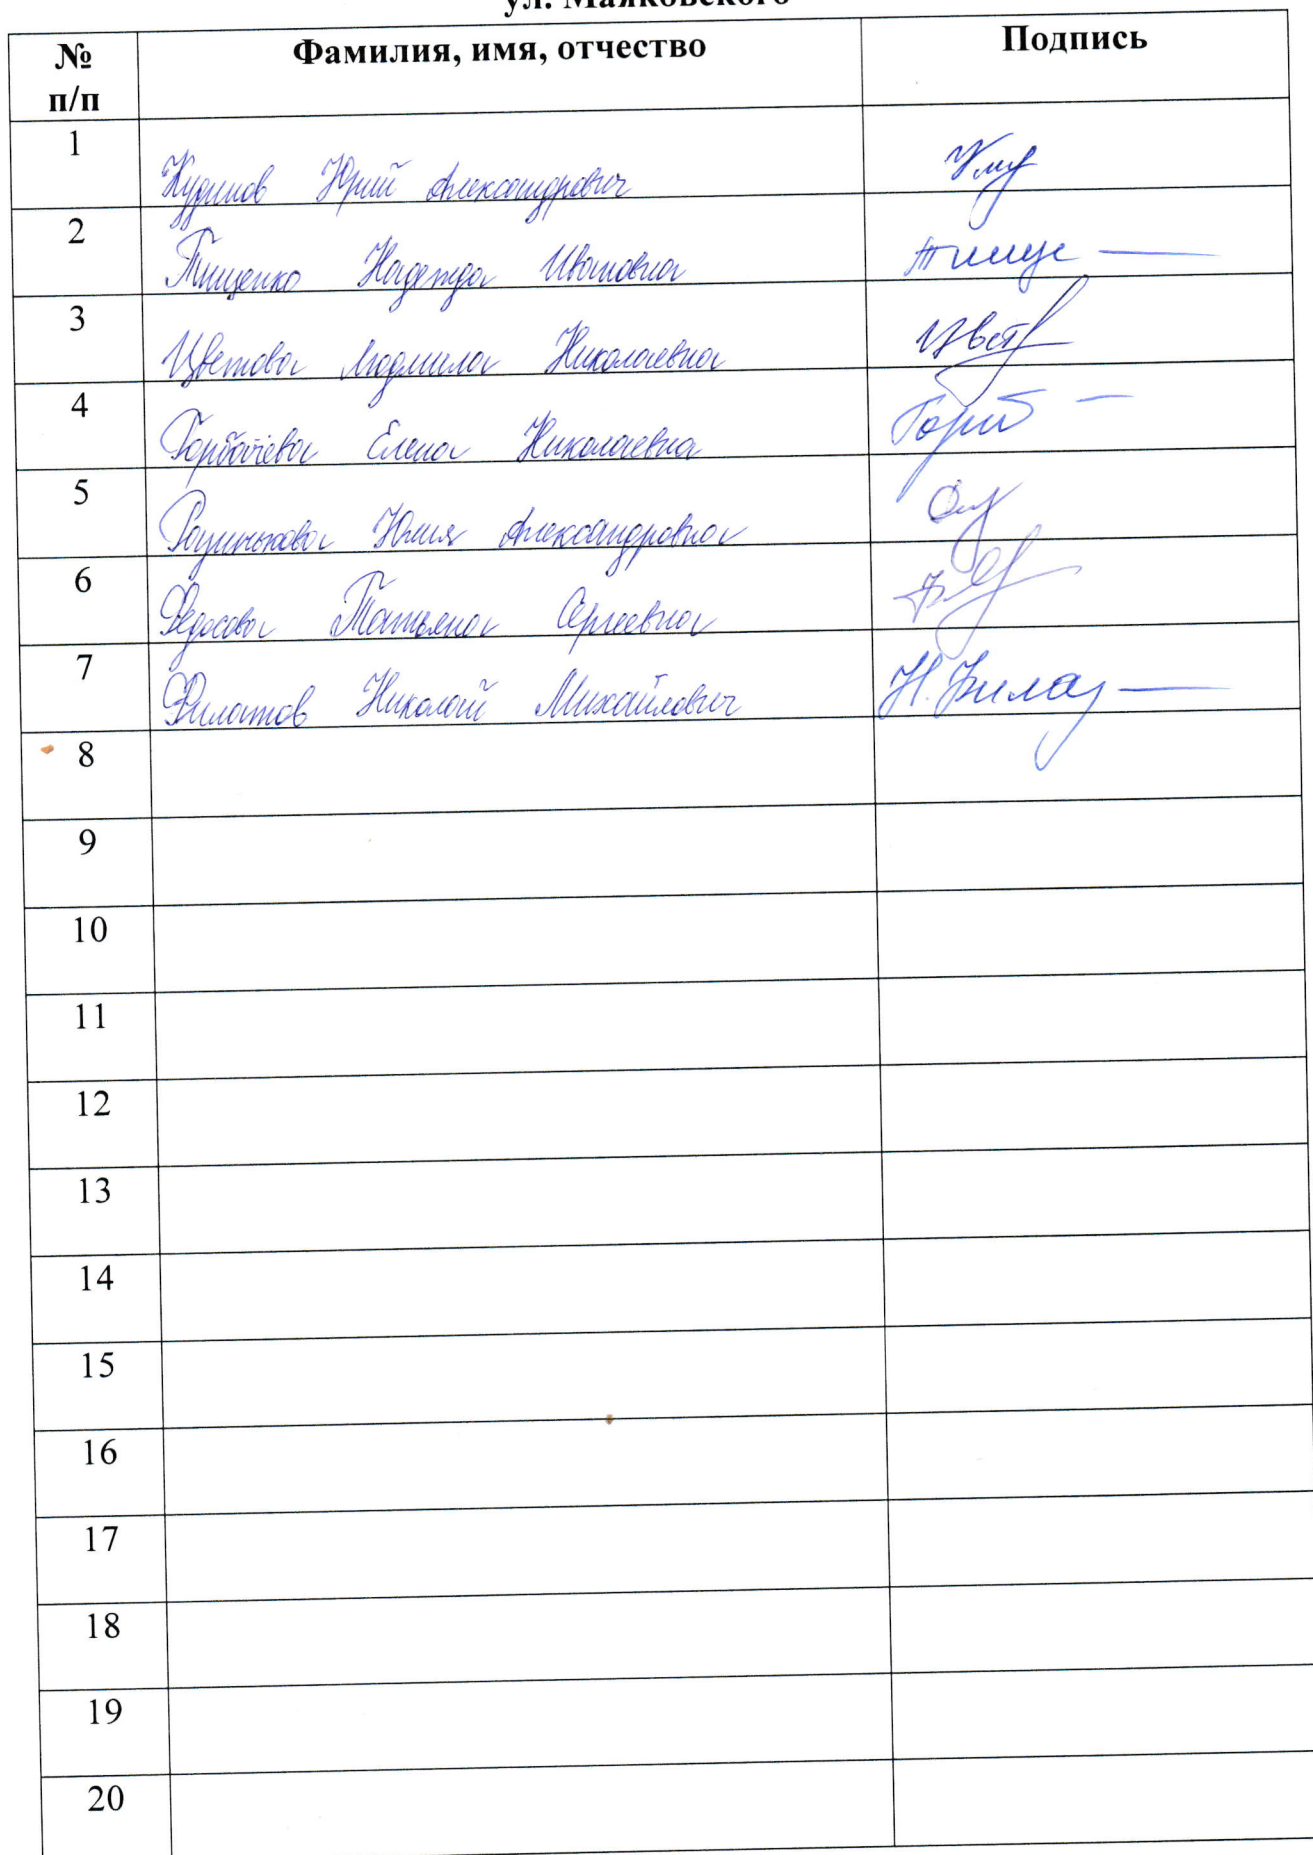 ул. Маяковского
№ п/п Фамилия, имя, отчество Подпись
1 Кудинов Юрий Александрович
2 Тищенко Надежда Ивановна Тище
3 Цветова Людмила Николаевна Цвет
4 Горбачёва Елена Николаевна
5 Юлия Александровна
6 Федосова Татьяна Сергеевна
7 Филатов Николай Михайлович Н. Фила
8
9
10
11
12
13
14
15
16
17
18
19
20